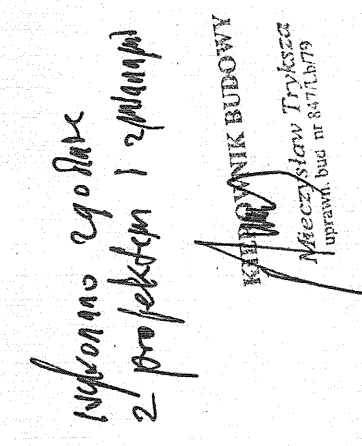 wykonano zgodnie
z projektem i zmianami
KIEROWNIK BUDOWY
Mieczysław Tryksza
uprawn. bud nr 847/Lb/79